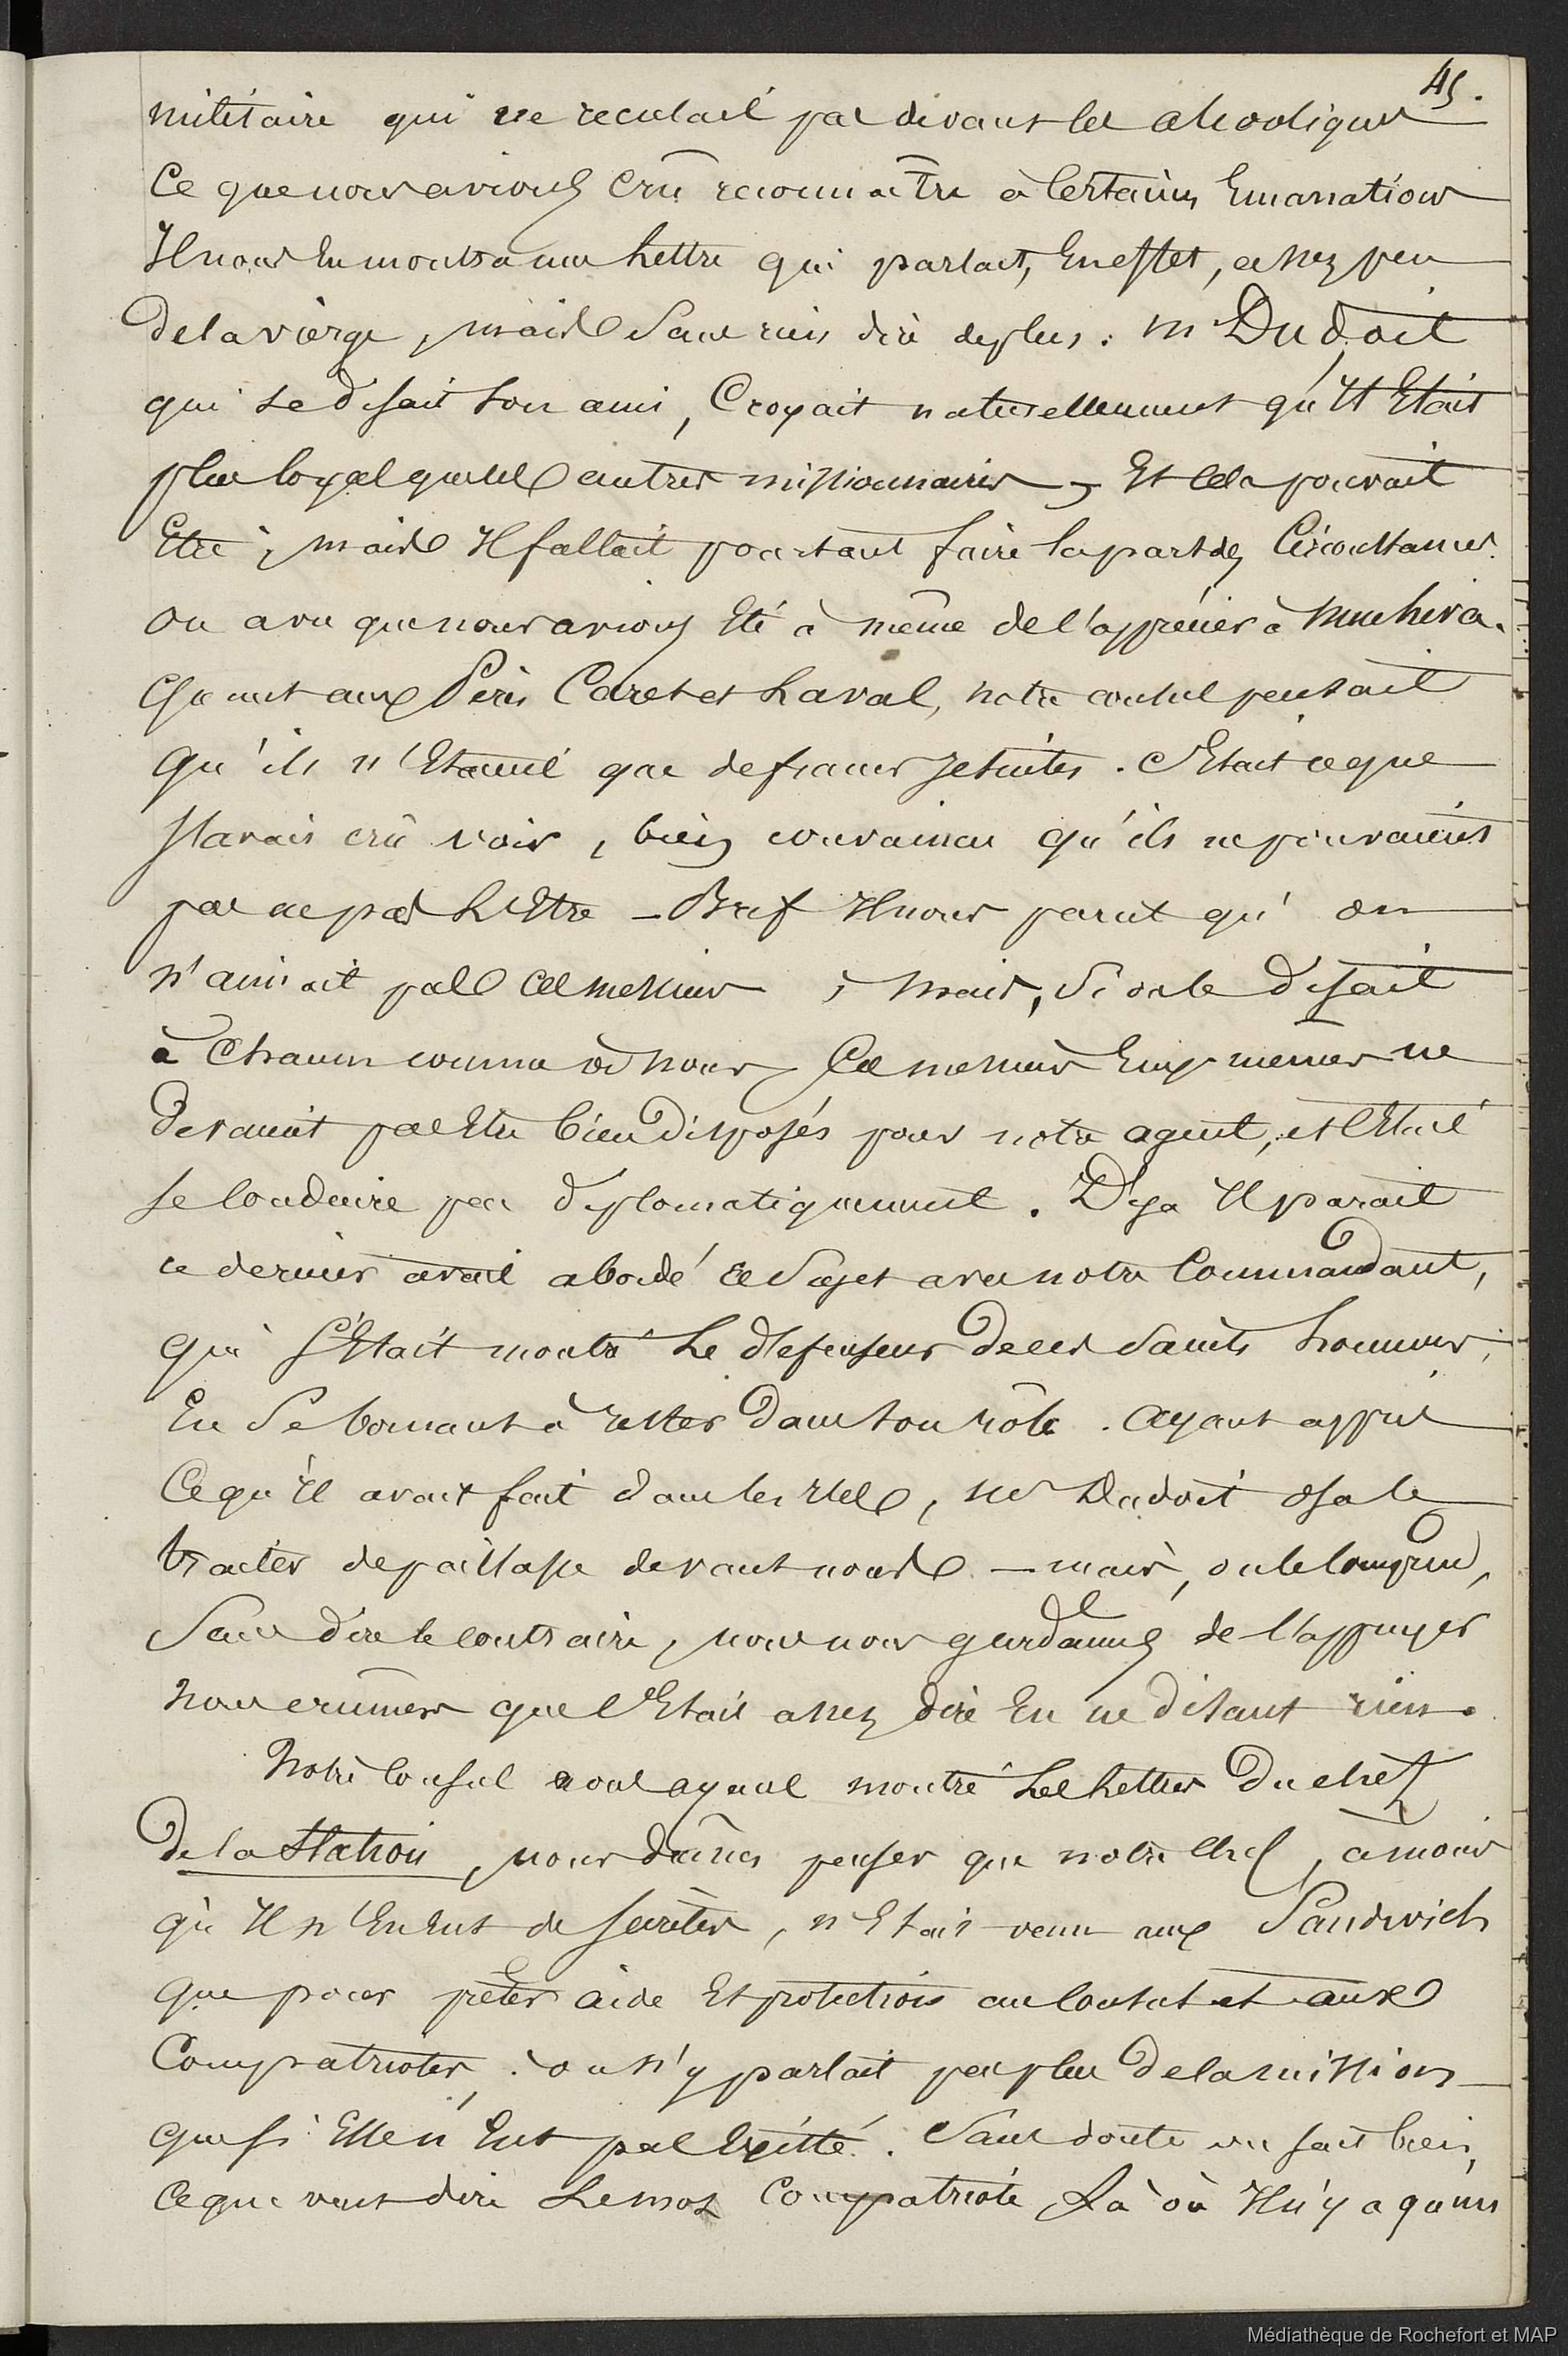 45.
militaire qui ne reculait pas devant les alcooliques
Ce que nous avions crû reconnaître à Certaines Emanations
Il nous En montra une Lettre qui parlait, En effet, assez peu
de la vierge, mais Sans rien dire de plus. Mr Dudoit
qui se disait Son ami, Croyait naturellement qu'Il Etait
plus loyal que les autres missionnaires, Et cela pouvait
Etre ; mais Il fallait pourtant faire la part des Circonstances.
on a vu que nous avions Eté à même de l'apprécier à
Quant aux Pères Caret et Laval, notre consul pensait
qu'ils n'Etaient que de francs Jesuites. C'Etait ce que
J'avais crû voir, bien convaincu qu'ils ne pouvaient
pas ne pas L'Etre — Bref Il nous parut qu'on
n'aimait pas ces messieurs ; mais, Si on le disait
à Chacun comme à nous, Ces messieurs Eux-mêmes ne
devaient pas Etre bien disposés pour notre agent, et c'Etait
se Conduire peu diplomatiquement. Deja Il parait
ce dernier avait abordé ce Sujet avec notre Commandant,
qui S'Etait montré Le défenseur de ces Saints hommes,
En Se bornant à rester dans son rôle. Ayant appris
Ce qu'Il avait fait dans les Iles, Mr Dudoit osa le
traiter de paillasse devant nous — mais, on le comprend,
Sans dire le contraire, nous nous gardames de l'appuyer
nous crûmes que c'Etait assez dire En ne disant rien.
Notre Consul nous ayant montré Les Lettres du chef
de la Station, nous dûmes penser que notre chef, à moins
qu'Il n'En Eut de secrètes, n'Etait venu aux Sandwich
que pour prêter aide Et protection au Consul et aux
Compatriotes ; on n'y parlait pas plus de la mission
que si Elle n'Eut pas Existé. Sans doute on sait bien,
Ce que veut dire Le mot Compatriote, Là où Il n'y a qu'un
Médiathèque de Rochefort et MAP